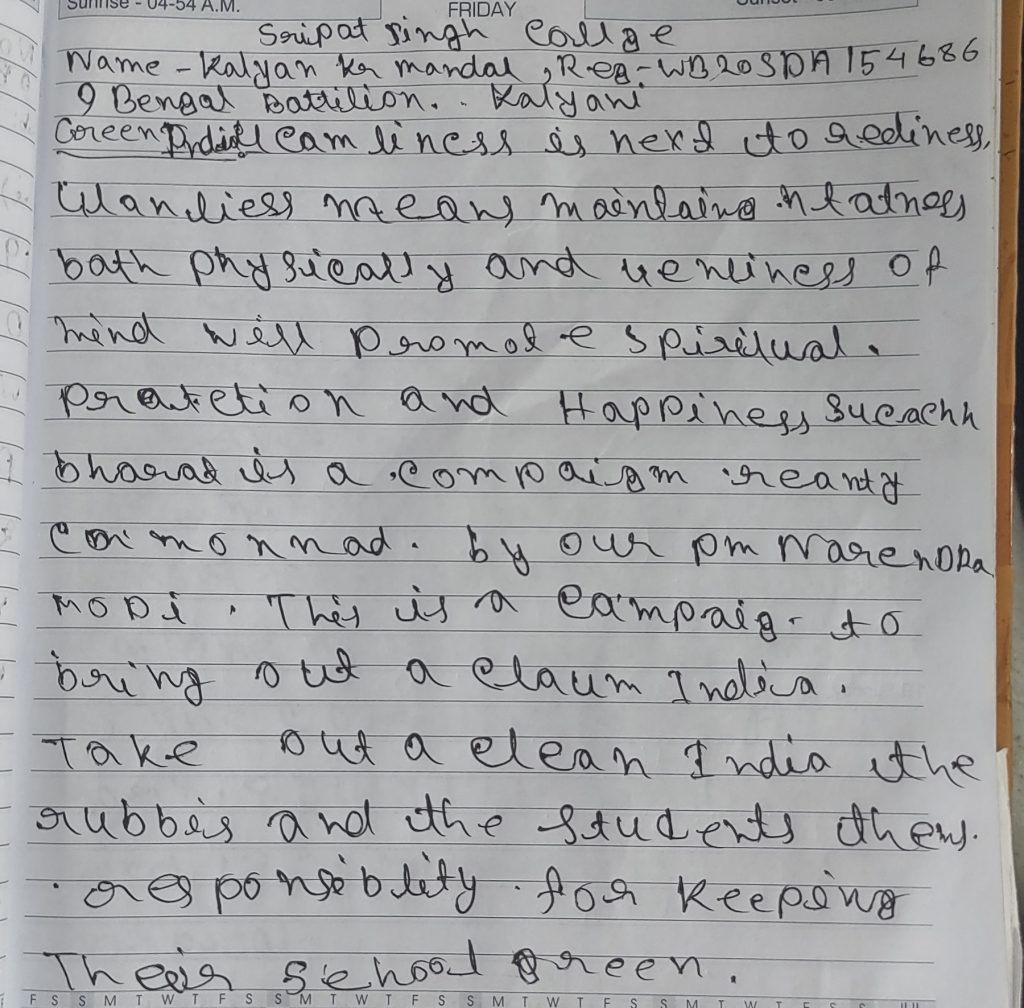 Sunrise - 04-54 A.M.
FRIDAY
Sripat singh Collge
Name - Kalyan Kr mandal, Reg - WB20SDA154686
9 Bengal Battilion. . Kalyani
Green India Cleamliness is next to rediness,
means maintaing ntatness
bath physically and of
mind will promote spiritual.
pratetion and Happiness Swachh
bharat is a compaigm reanty
commonnad. by our pm NarenDRa
MODi. This is a campaig- to
bring out a claum India.
Take out a clean India the
rubbis and the students thers.
. responsiblity . for Keeping
Their School green.
F S S M T W T F S S M T W T F S S M T W T F S S M T W T F S S M